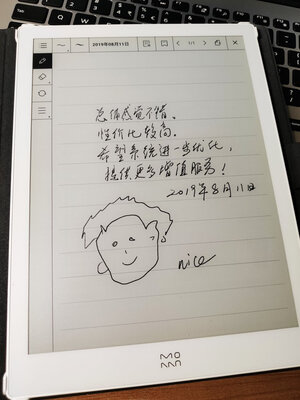 2019年08月11日
1/1
总体感觉不错。
性价比较高。
希望系统进一步优化,
提供更多增值服务!
2019年8月11日
nice
MOAAN